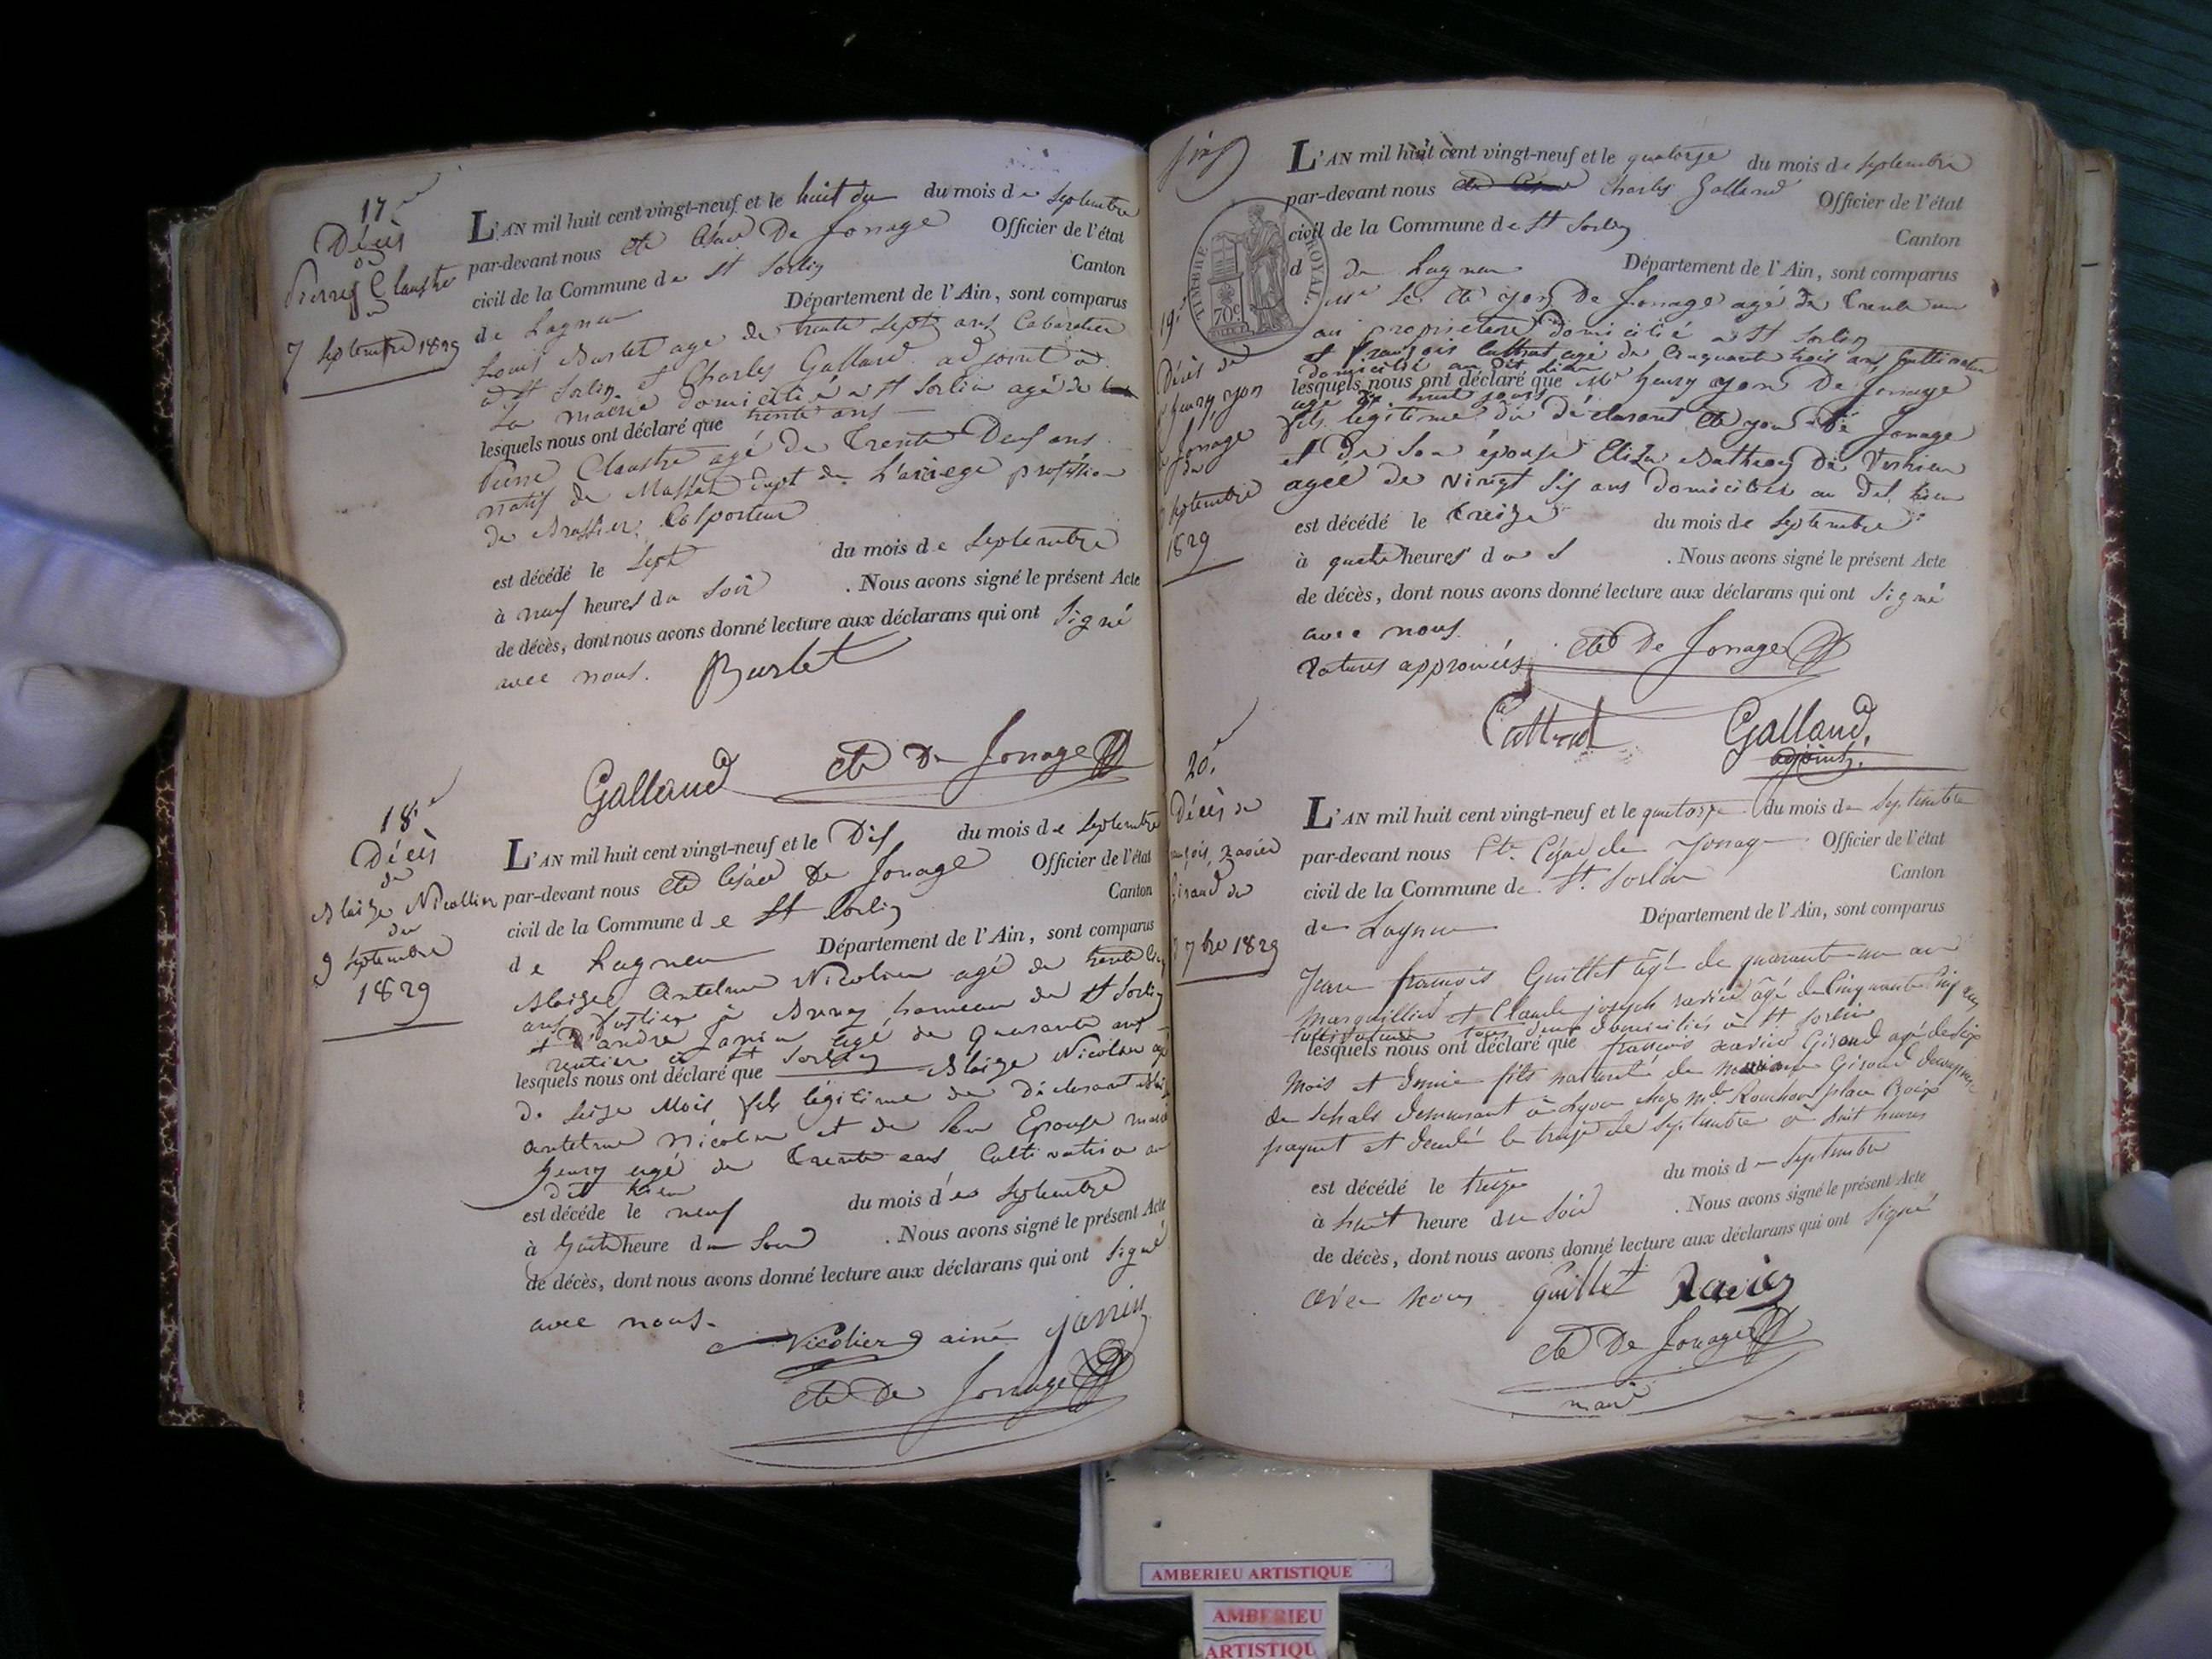 17.e
Décès
de
Pierre Claustre
du
7 septembre 1829
L'AN mil huit cent vingt-neuf et le huit du du mois de septembre
par-devant nous cte César De Jonage Officier de l'état
civil de la Commune de St Sorlin Canton
de Lagneu Département de l'Ain, sont comparus
Louis Burlet age de trente sept ans Cabaretier
a St Sorlin et Charles Galland adjoint a
la mairie domicilié a St Sorlin agé de
lesquels nous ont déclaré que trente ans
Pierre Claustre agé de Trente Deux ans
natif de Massat dept de L'ariege profession
de Colporteur
est décédé le sept du mois de septembre
à neuf heures du soir . Nous avons signé le présent Acte
de décès, dont nous avons donné lecture aux déclarans qui ont signé
avec nous. Burlet
Galland cte De Jonage
18.e
Décès
de
Blaise Nicollin
du
9 septembre
1829
L'AN mil huit cent vingt-neuf et le Dix du mois de septembre
par-devant nous cte César De Jonage Officier de l'état
civil de la Commune de St Sorlin Canton
de Lagneu Département de l'Ain, sont comparus
Blaise Antelme Nicolin agé de trente
ans a hameau de St Sorlin
et D'andre Janin agé de quarante ans
rentier a St Sorlin
lesquels nous ont déclaré que Blaise Nicolin agé
de seize Mois fils légitime du Déclarant
antelme Nicolin et de son Epouse
agé de trente ans Cultivatrice au
dit lieu
est décéde le neuf du mois de septembre
à heure du soir . Nous avons signé le présent Acte
de décès, dont nous avons donné lecture aux déclarans qui ont signé
avec nous.
Nicolier ainé janin
cte De Jonage
six
TIMBRE ROYAL.
70c
19.e
Décès de
henry yon
de Jonage
du
septembre
1829
L'AN mil huit cent vingt-neuf et le quatorze du mois de septembre
par-devant nous Charles Galland Officier de l'état
civil de la Commune de St Sorlin Canton
d de Lagneu Département de l'Ain, sont comparus
Mr le cte yon De Jonage agé de trente un
an propriétaire domicilié a St Sorlin
et françois Cattrat agé de Cinquante trois ans
domicilié au dit lieu
lesquels nous ont déclaré que Mr henry yon De Jonage
agé de huit jours
fils légitime du déclarant cte yon De Jonage
et de son épouse Eliza De
agée de vingt six ans domiciliée au dit lieu
est décédé le treize du mois de septembre
à quatre heures du s . Nous avons signé le présent Acte
de décès, dont nous avons donné lecture aux déclarans qui ont signé
avec nous
ratures approuvées cte De Jonage
Cattrat Galland,
adjoint.
20.e
Décès de
françois xavier
Giraud du
7bre 1829
L'AN mil huit cent vingt-neuf et le quatorze du mois de septembre
par-devant nous Cte César de Jonage Officier de l'état
civil de la Commune de St Sorlin Canton
de Lagneu Département de l'Ain, sont comparus
Jean françois Guillet âgé de quarante un an
marguillier et Claude joseph ravier âgé de Cinquante ans
tous deux domiciliés à St Sorlin
lesquels nous ont déclaré que françois xavier Giraud agé de six
mois et demie fils naturel de Giraud
de schals demeurant à Lyon chez mde place Croix
paquet et décédé le treize de septembre à huit heures
est décédé le treize du mois de septembre
à huit heure du soir . Nous avons signé le présent Acte
de décès, dont nous avons donné lecture aux déclarans qui ont signé
avec nous Guillet Ravier
cte De Jonage
maire
AMBERIEU ARTISTIQUE
AMBERIEU
ARTISTIQU